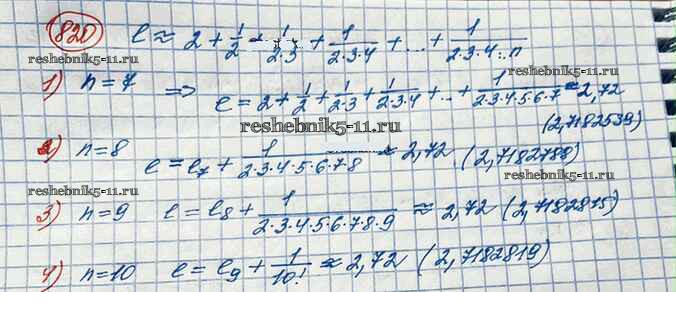 820) e ≈ 2 + 1/2 + 1/(2·3) + 1/(2·3·4) + ... + 1/(2·3·4·..n)
reshebnik5-11.ru reshebnik5-11.ru
1) n = 7 ⇒ e = 2 + 1/2 + 1/(2·3) + 1/(2·3·4) + ... + 1/(2·3·4·5·6·7) ≈ 2,72
reshebnik5-11.ru reshebnik5-11.ru
(2,7182539)
2) n = 8 e = e₇ + 1/(2·3·4·5·6·7·8) ≈ 2,72 (2,7182788)
reshebnik5-11.ru reshebnik5-11.ru
3) n = 9 e = e₈ + 1/(2·3·4·5·6·7·8·9) ≈ 2,72 (2,7182815)
4) n = 10 e = e₉ + 1/10! ≈ 2,72 (2,7182819)